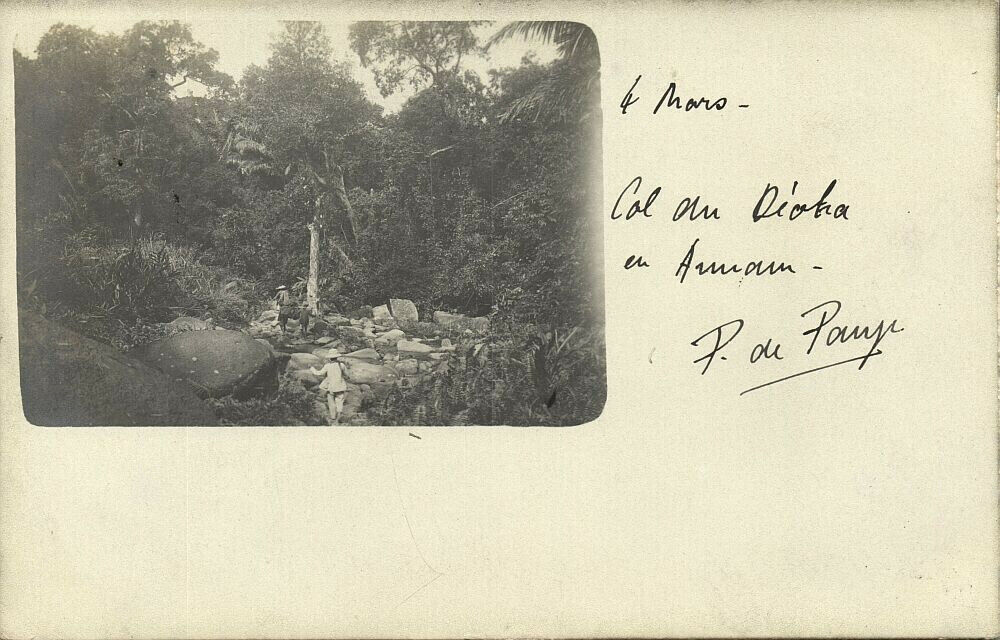 4 Mars -
Col du Déoka
en Annam -
P. de